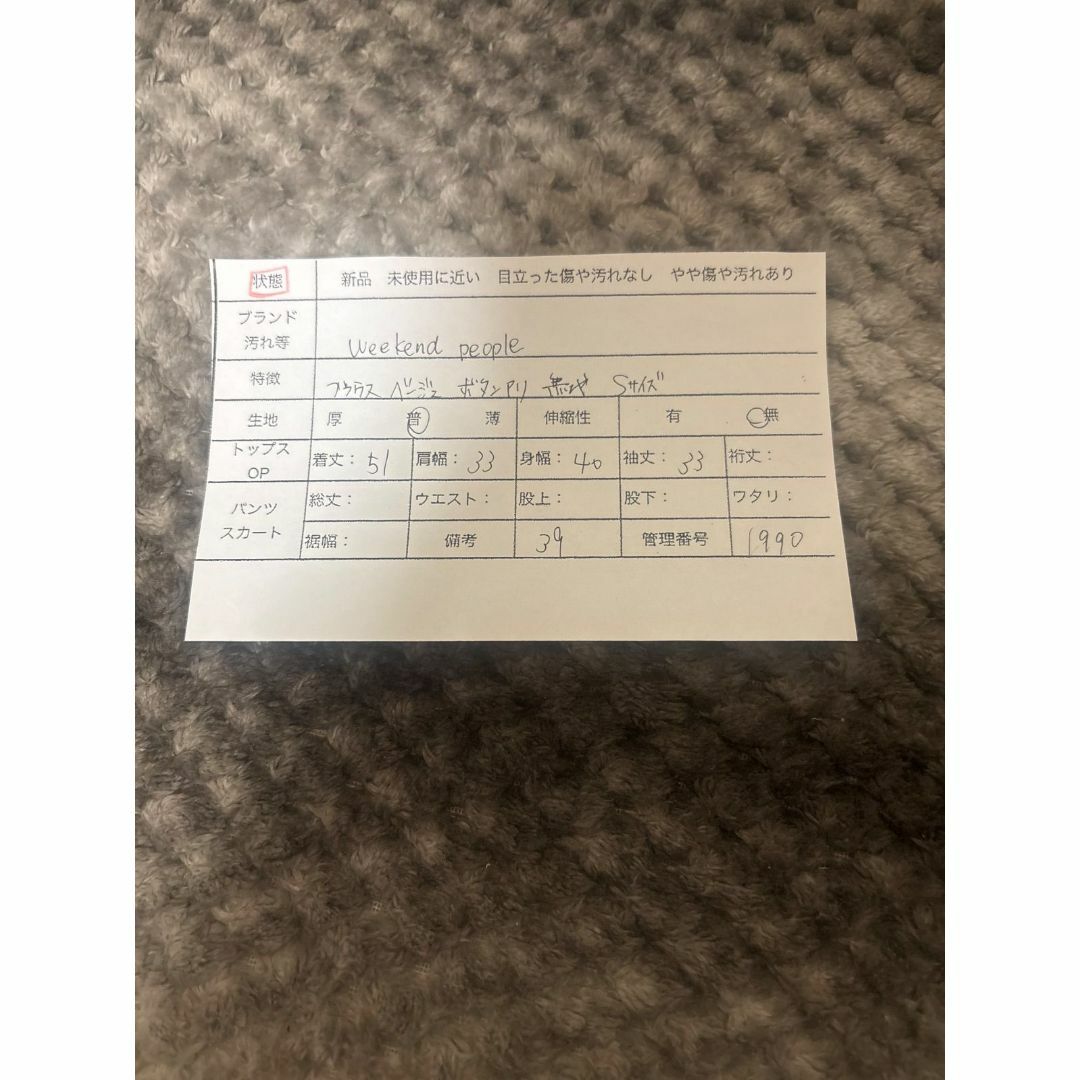 状態 新品 未使用に近い 目立った傷や汚れなし やや傷や汚れあり
ブランド
汚れ等 weekend people
特徴 ブラウス ベージュ ボタンアリ 無地 Sサイズ
生地 厚 普 薄 伸縮性 有 無
トップス
OP 着丈：51 肩幅：33 身幅：40 袖丈：33 裄丈：
パンツ
スカート 総丈： ウエスト： 股上： 股下： ワタリ：
裾幅： 備考 39 管理番号 1990